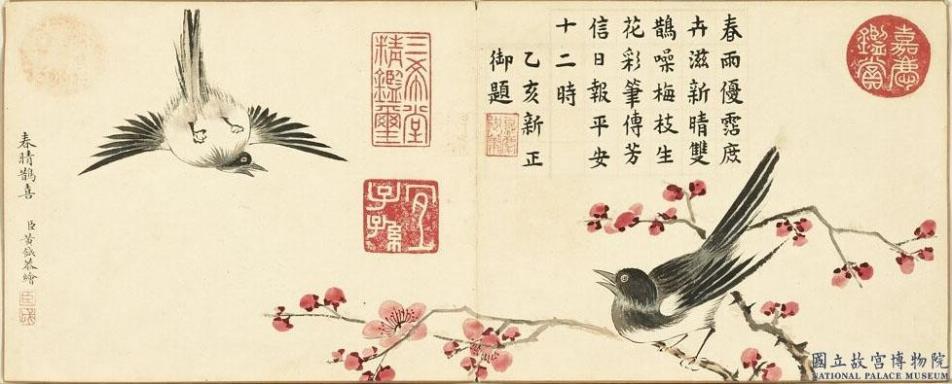 春雨優霑庶
卉滋新晴雙
鵲噪梅枝生
花彩筆傳芳
信日報平安
十二時
乙亥新正
御題
嘉慶鑑賞
三希堂精鑑璽
宜子孫
春晴鵲喜
臣黃鉞恭繪
國立故宮博物院
NATIONAL PALACE MUSEUM